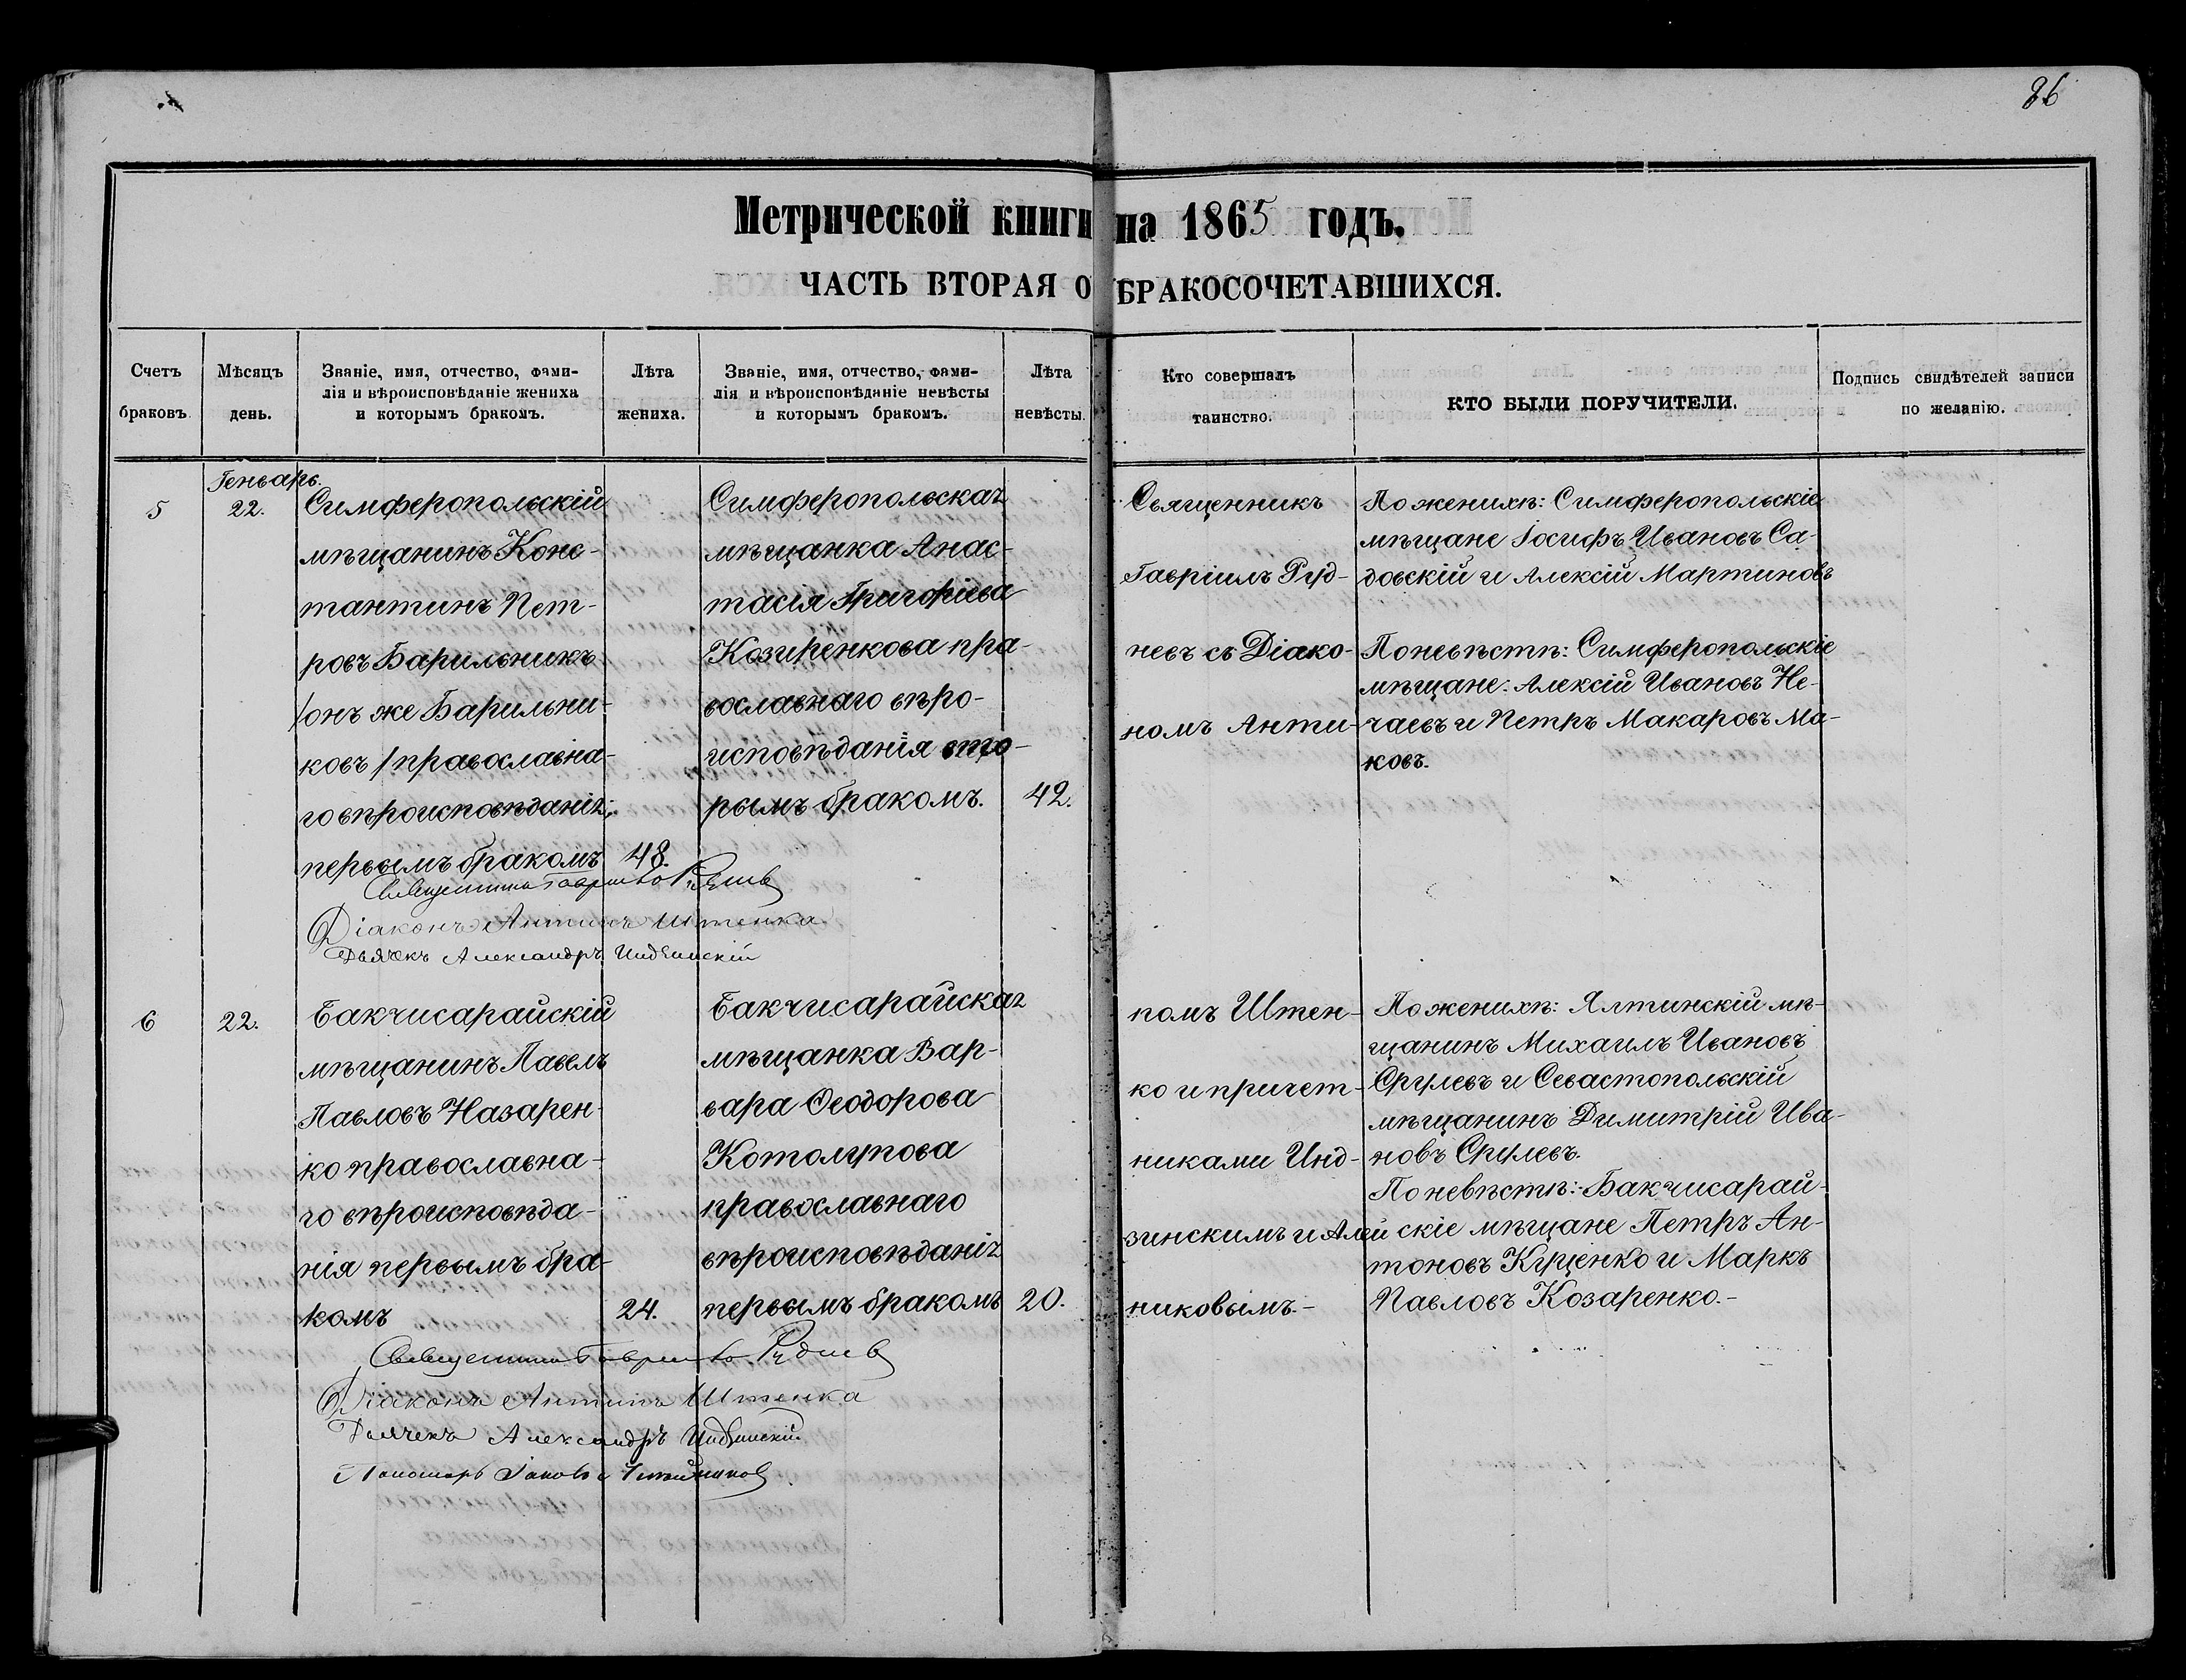 86
Метрической книги на 1865 годъ.
ЧАСТЬ ВТОРАЯ О БРАКОСОЧЕТАВШИХСЯ.
Счетъ браковъ.
Мѣсяцъ день.
Званіе, имя, отчество, фами-
лія и вѣроисповѣданіе жениха
и которымъ бракомъ.
Лѣта жениха.
Званіе, имя, отчество, фами-
лія и вѣроисповѣданіе невѣсты
и которымъ бракомъ.
Лѣта невѣсты.
Кто совершалъ
таинство.
КТО БЫЛИ ПОРУЧИТЕЛИ.
Подпись свидѣтелей записи
по желанію.
5
Геньварь.
22.
Симферопольскій
мѣщанинъ Конс-
тантинъ Пет-
ровъ Барильникъ
/онъ же Барильни-
ковъ/ православна-
го вѣроисповѣданія;
первымъ бракомъ
48.
Симферопольская
мѣщанка Анас-
тасія Григоріева
Козиренкова пра-
вославнаго вѣро-
исповѣданія вто-
рымъ бракомъ.
42.
Священникъ
Гавріилъ Руд-
невъ съ Діако-
номъ Анти-
По женихѣ: Симферопольскіе
мѣщане Іосифъ Ивановъ Са-
довскій и Алексій Мартиновъ
По невѣстѣ: Симферопольскіе
мѣщане: Алексій Ивановъ Не-
чаевъ и Петръ Макаровъ Ма-
ковъ.
Священникъ Гавріилъ Рудневъ
Діаконъ Антипъ Штенка
Дьячекъ Александръ Индзинскій
6
22.
Бакчисарайскій
мѣщанинъ Павелъ
Павловъ Назарен-
ко православна-
го вѣроисповѣда-
нія первымъ бра-
комъ
24.
Бакчисарайская
мѣщанка Вар-
вара Ѳеодорова
Котолупова
православнаго
вѣроисповѣданія
первымъ бракомъ
20.
помъ Штен-
ко и причет-
никами Инд-
зинскимъ и Алей
никовымъ.-
По женихѣ: Ялтинскій мѣ-
щанинъ Михаилъ Ивановъ
Срулевъ и Севастопольскій
мѣщанинъ Димитрій Ива-
новъ Срулевъ.
По невѣстѣ:- Бакчисарай-
скіе мѣщане Петръ Ан-
тоновъ Куценко и Маркъ
Павловъ Козаренко.-
Священникъ Гавріилъ Рудневъ
Діаконъ Антипъ Штенка
Дьячекъ Александръ Индзинскій
Пономарь Іаковъ Алейниковъ